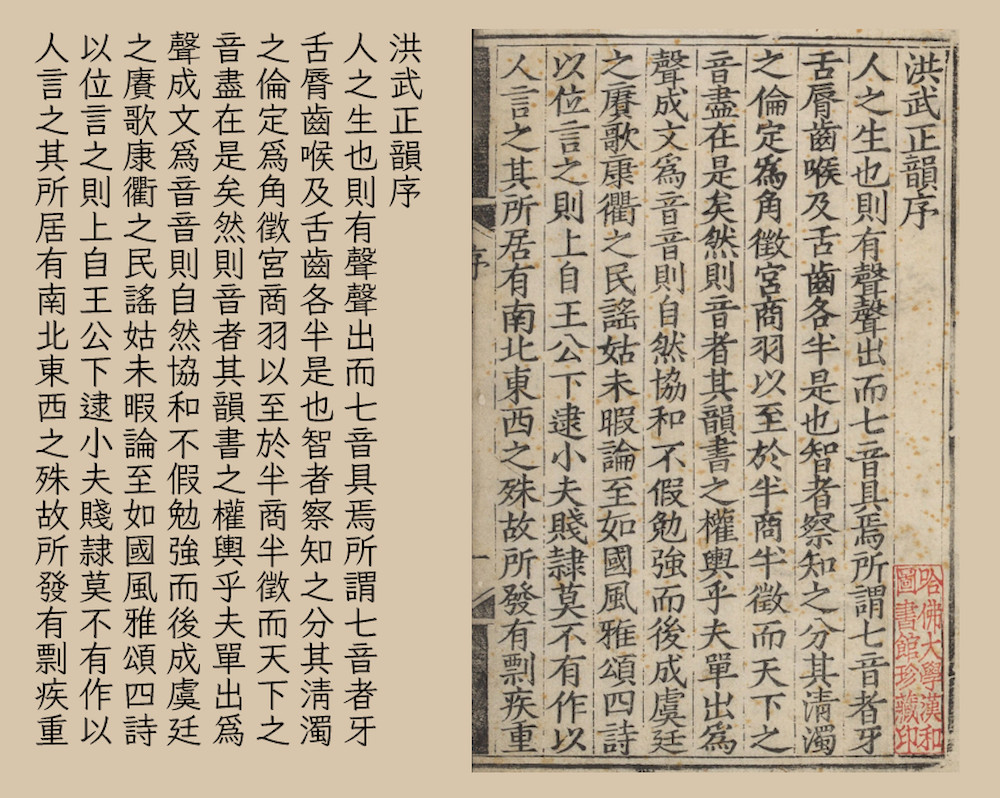 洪武正韻序
人之生也則有聲聲出而七音具焉所謂七音者牙
舌脣齒喉及舌齒各半是也智者察知之分其淸濁
之倫定爲角徵宮商羽以至於半商半徵而天下之
音盡在是矣然則音者其韻書之權輿乎夫單出爲
聲成文爲音音則自然協和不假勉強而後成虞廷
之賡歌康衢之民謠姑未暇論至如國風雅頌四詩
以位言之則上自王公下逮小夫賤隷莫不有作以
人言之其所居有南北東西之殊故所發有剽疾重
哈佛大學漢和
圖書館珍藏印
洪武正韻序
人之生也則有聲聲出而七音具焉所謂七音者牙
舌脣齒喉及舌齒各半是也智者察知之分其淸濁
之倫定爲角徵宮商羽以至於半商半徵而天下之
音盡在是矣然則音者其韻書之權輿乎夫單出爲
聲成文爲音音則自然協和不假勉強而後成虞廷
之賡歌康衢之民謠姑未暇論至如國風雅頌四詩
以位言之則上自王公下逮小夫賤隷莫不有作以
人言之其所居有南北東西之殊故所發有剽疾重